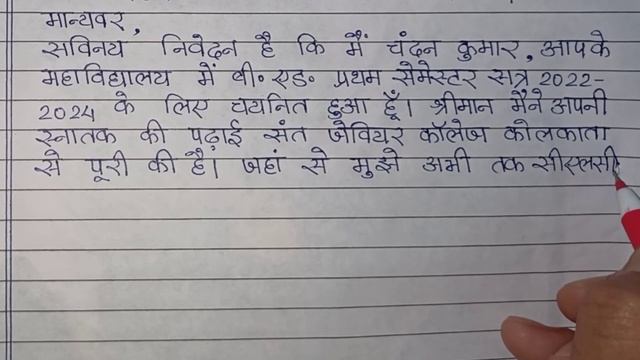 मान्यवर,
सविनय निवेदन है कि मैं चंदन कुमार, आपके
महाविद्यालय में बी॰ एड॰ प्रथम सेमेस्टर सत्र 2022-
2024 के लिए चयनित हुआ हूँ। श्रीमान मैंने अपनी
स्नातक की पढ़ाई संत जेवियर कॉलेज कोलकाता
से पूरी की है। जहां से मुझे अभी तक सीएलसी